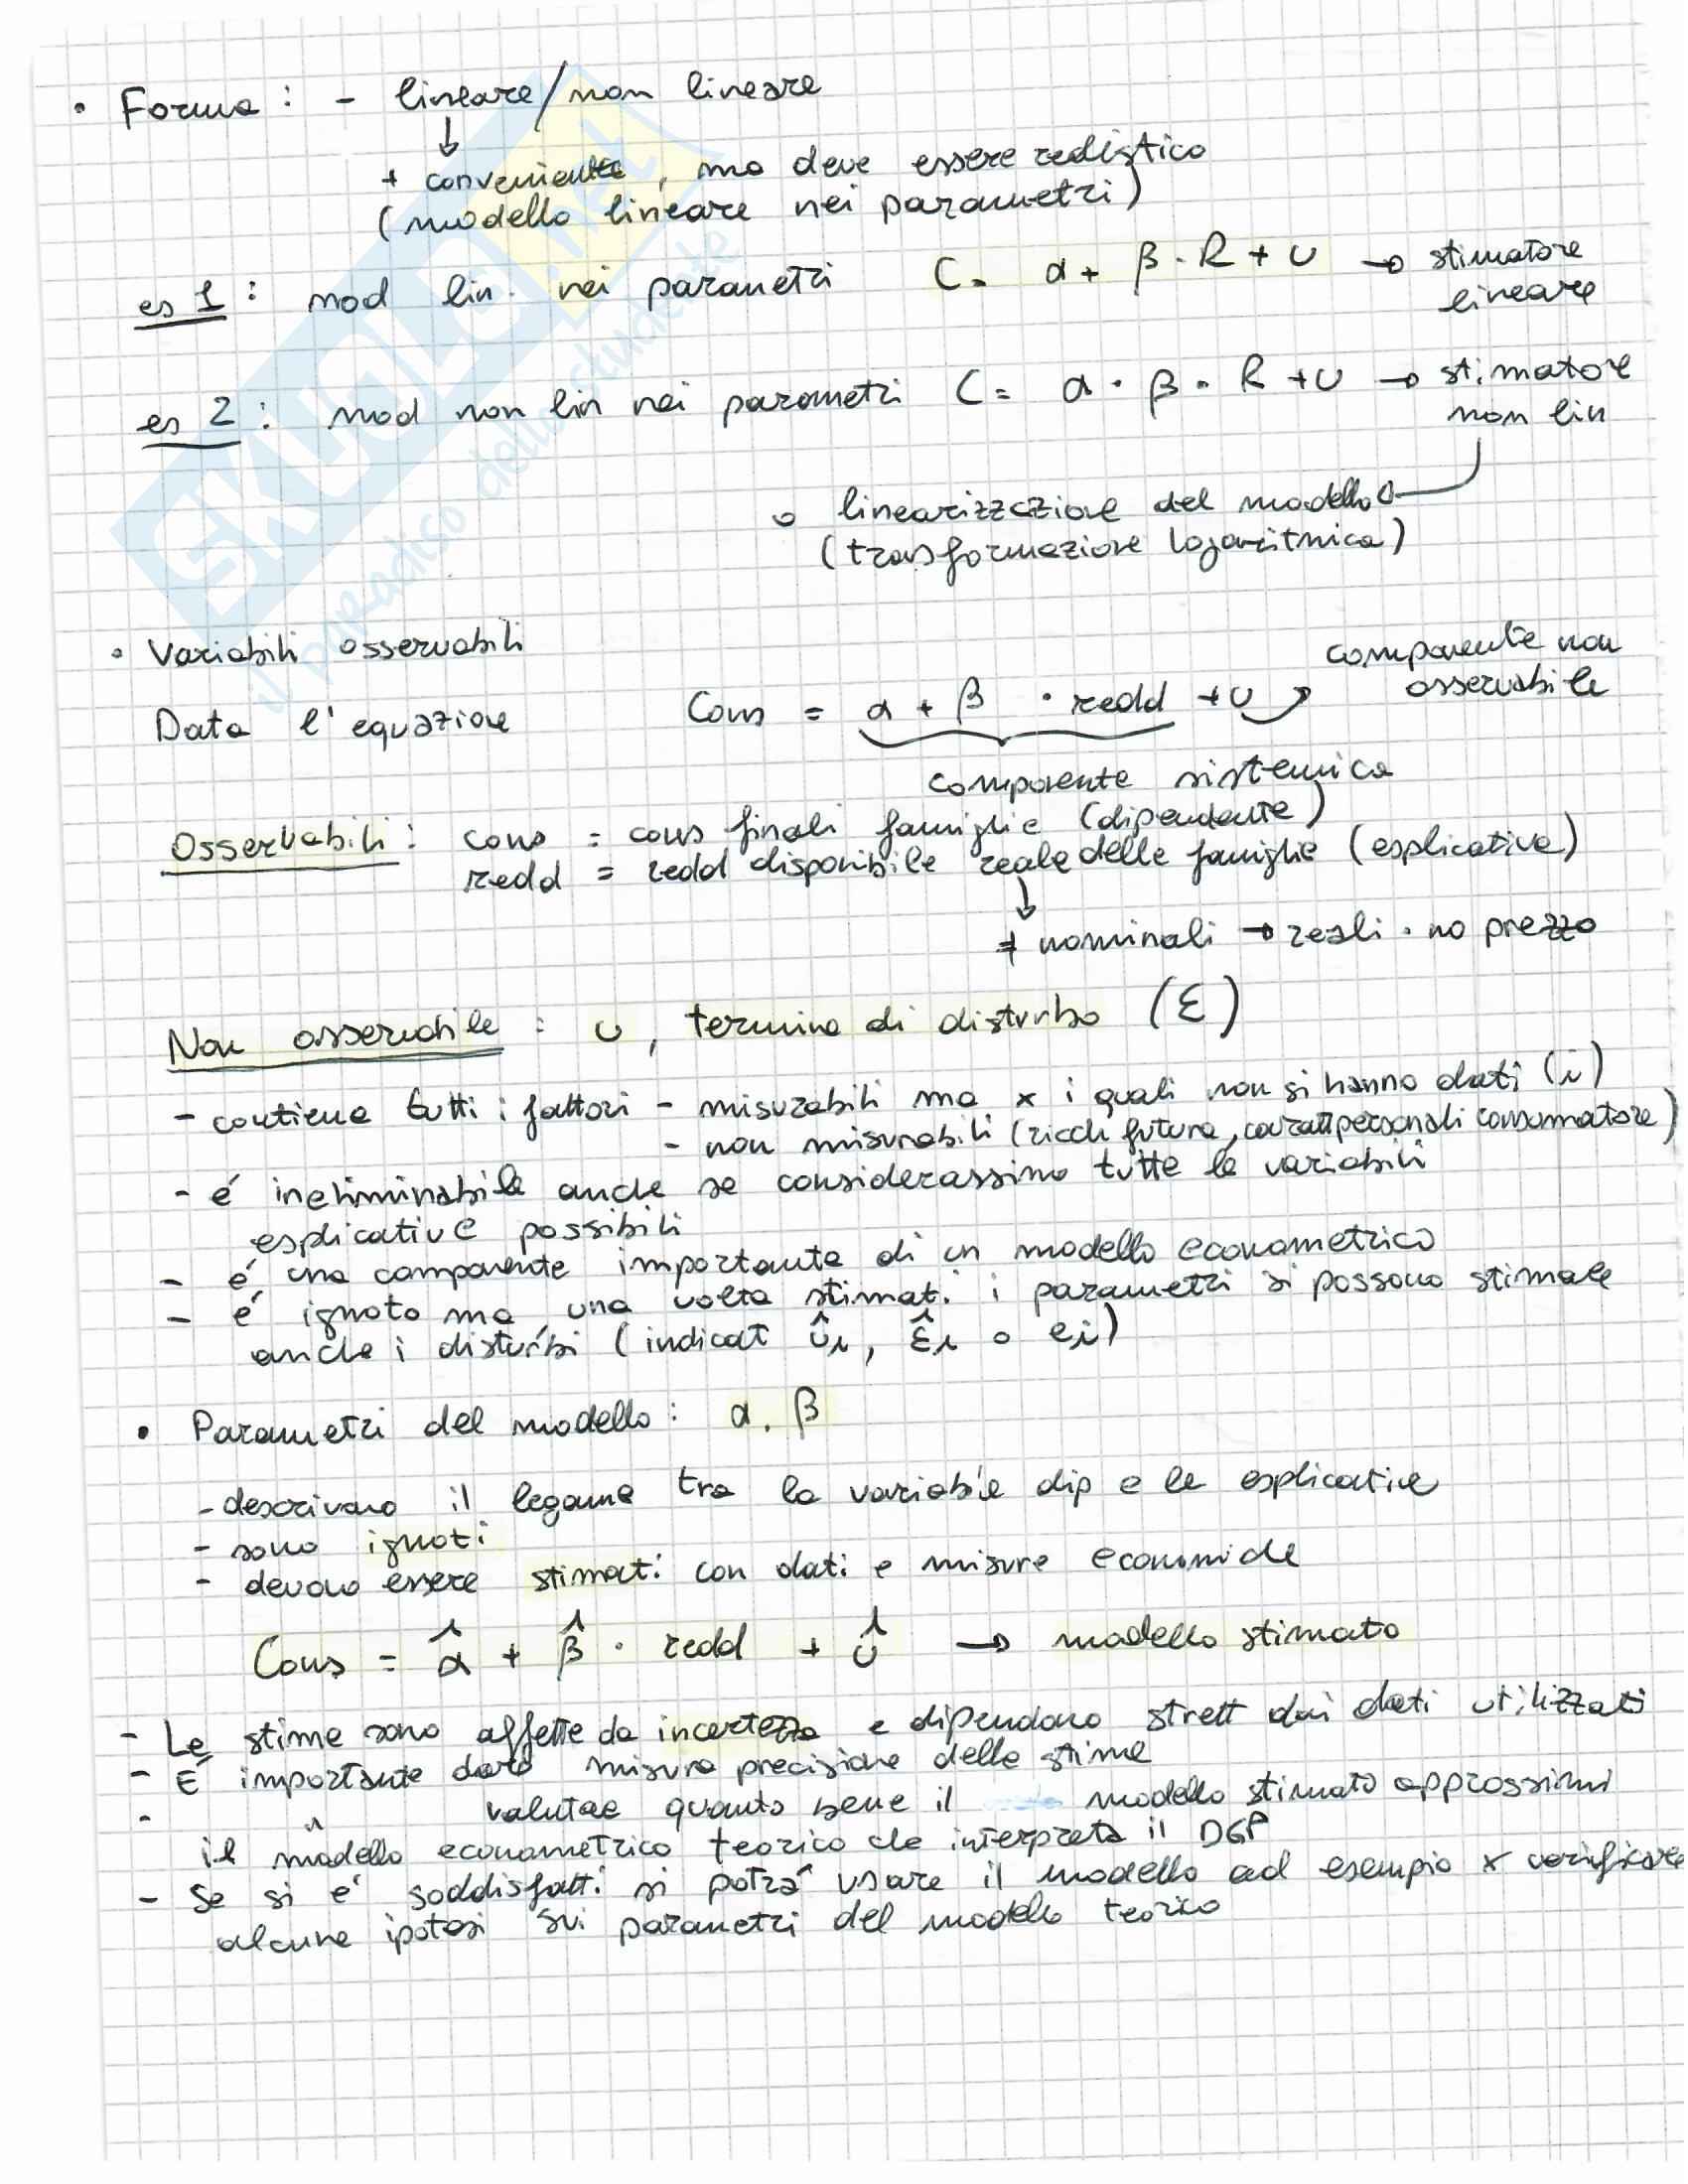 • Forma : - lineare/non lineare
↓
+ conveniente, ma deve essere realistico
(modello lineare nei parametri)
es 1 : mod lin. nei parametri C = α + β · R + u → stimatore
lineare
es 2 : mod non lin nei parametri C = α · β · R + u → stimatore
non lin
o linearizzazione del modello
(trasformazione logaritmica)
• Variabili osservabili
componente non
osservabile
Data l'equazione Cons = α + β · redd + u
componente sistemica
Osservabili : cons = cons finali famiglie (dipendente)
redd = redd disponibile reale delle famiglie (esplicativa)
↓
≠ nominali → reali · no prezzo
Non osservabile : u, termine di disturbo (ε)
- contiene tutti i fattori - misurabili ma x i quali non si hanno dati (i)
- non misurabili (ricch futura, caratt personali consumatore)
- é ineliminabile anche se considerassimo tutte le variabili
esplicative possibili
- é una componente importante di un modello econometrico
- é ignoto ma una volta stimati i parametri si possono stimare
anche i disturbi (indicati ûi, ε̂i o ei)
• Parametri del modello : α, β
- descrivono il legame tra la variabile dip e le esplicative
- sono ignoti
- devono essere stimati con dati e misure economiche
Cons = α̂ + β̂ · redd + û → modello stimato
- Le stime sono affette da incertezza e dipendono strett dai dati utilizzati
- É importante dare misura precisione delle stime
- " valutae quanto bene il modello stimato approssimi
il modello econometrico teorico che interpreta il DGP
- Se si e' soddisfatti si potrá usare il modello ad esempio x verificare
alcune ipotesi sui parametri del modello teorico
SKUOLA.net
il paradiso dello studente